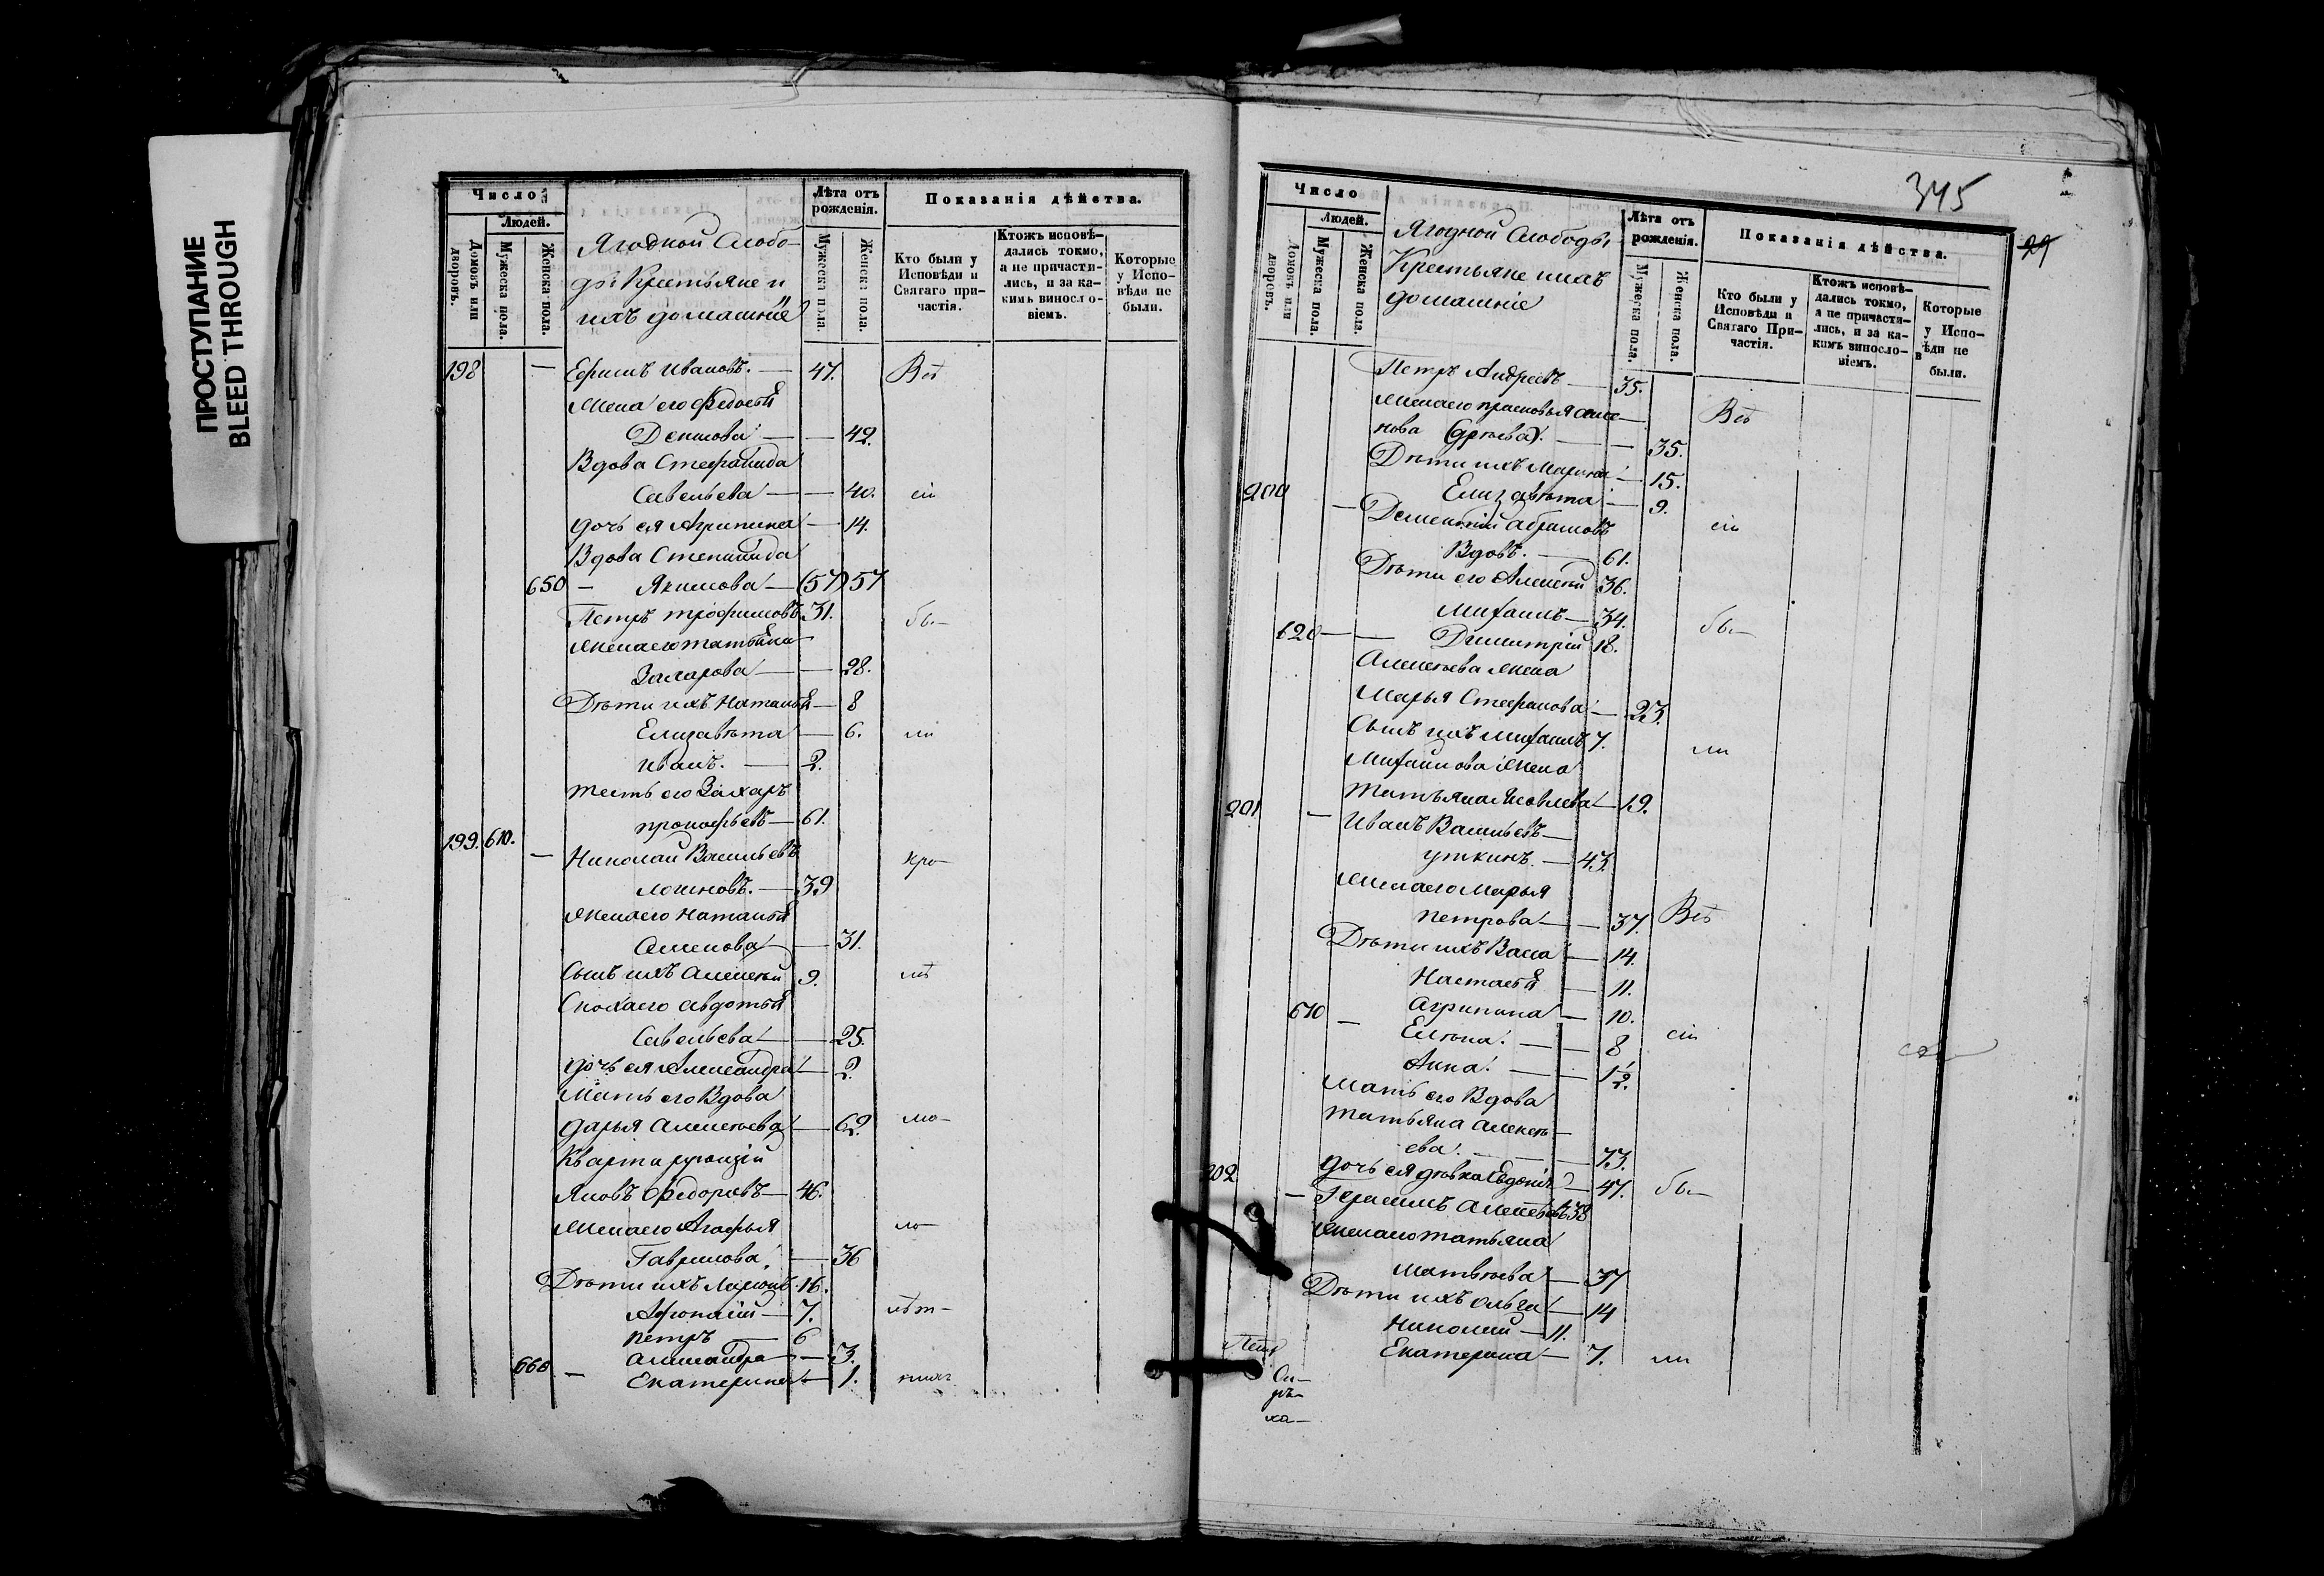 ПРОСТУПАНИЕ
BLEED THROUGH
Число
Людей.
Домовъ или дворовъ.
Мужеска пола.
Женска пола.
Ягодной Слобо-
ды Крестьяне и
ихъ домашніе
Лѣта отъ
рожденія.
Мужеска пола.
Женска пола.
Показанія дѣйства.
Кто были у
Исповѣди и
Святаго при-
частія.
Ктожъ исповѣ-
дались токмо,
а не причасти-
лись, и за ка-
кимъ виносло-
віемъ.
Которые
у Испо-
вѣди не
были.
198 — Ефимъ Ивановъ. — 47. Всѣ
Жена его Федосья
Денисова — — 42.
Вдова Стефанида
Савельева — — 40. сіи
дочь ея Агрипина — 14.
Вдова Степанида
650 — Якимова — (57) 57
Петръ Трофимовъ 31. бы-
Жена его Татьяна
Захарова — — 28.
Дѣти ихъ Наталья — 8
Елизавѣта — 6. ли
Иванъ. — 2.
Тесть его Захаръ
Прокофьевъ — 61.
199. 610. — Николай Васильевъ
Логиновъ. — 39
Жена его Наталья
Семенова — — 31.
Сынъ ихъ Алексѣй 9.
Сноха его Авдотья
Савельева — — 25.
дочь ея Александра — 2.
Мать его Вдова
Дарья Алексѣева — 62.
Квартирующій
Яковъ Федоровъ — 46.
Жена его Агафья
Гаврилова, — 36
Дѣти ихъ Ларіонъ 16.
Афонасій — 7.
Петръ — 6
Александра — 3.
660 — Екатерина — 1.
345
29
Число
Людей.
Домовъ или дворовъ.
Мужеска пола.
Женска пола.
Ягодной Слободы
Крестьяне и ихъ
домашніе
Лѣта отъ
рожденія.
Мужеска пола.
Женска пола.
Показанія дѣйства.
Кто были у
Исповѣди и
Святаго При-
частія.
Ктожъ исповѣ-
дались токмо,
а не причасти-
лись, и за ка-
кимъ виносло-
віемъ.
Которые
у Испо-
вѣди не
были.
Петръ Андреевъ — 35.
Жена его Прасковья Всѣ
— 35.
Дѣти ихъ Марина — 15.
Елизавѣта — 9.
200 — Дементій Абрамовъ сіи
Вдовъ. — 61.
Дѣти его Алексѣй 36.
Михаилъ — 34.
620 — — Димитрій 18. бы-
Алексѣева жена
Марья Стефанова — 23.
Сынъ ихъ Михаилъ 7.
Михаилова жена ли
Татьяна Яковлева — 19.
201 — Иванъ Васильевъ —
Уткинъ. — 43.
Жена его Марья
Петрова — — 37. Всѣ
Дѣти ихъ Васса — 14.
Настасья — 11.
670 — Агрипина — 10.
Елѣна. — 8 сіи
Анна. — 1/2.
Мать его Вдова
Татьяна Алексѣ-
ева. — 73.
дочь ея дѣвка — 47. бы-
202 — Герасимъ Алексѣевъ 38
Жена его Татьяна
Матвѣева — 37
Дѣти ихъ Ольга — 14
Николай — 11.
Екатерина — 7. ли